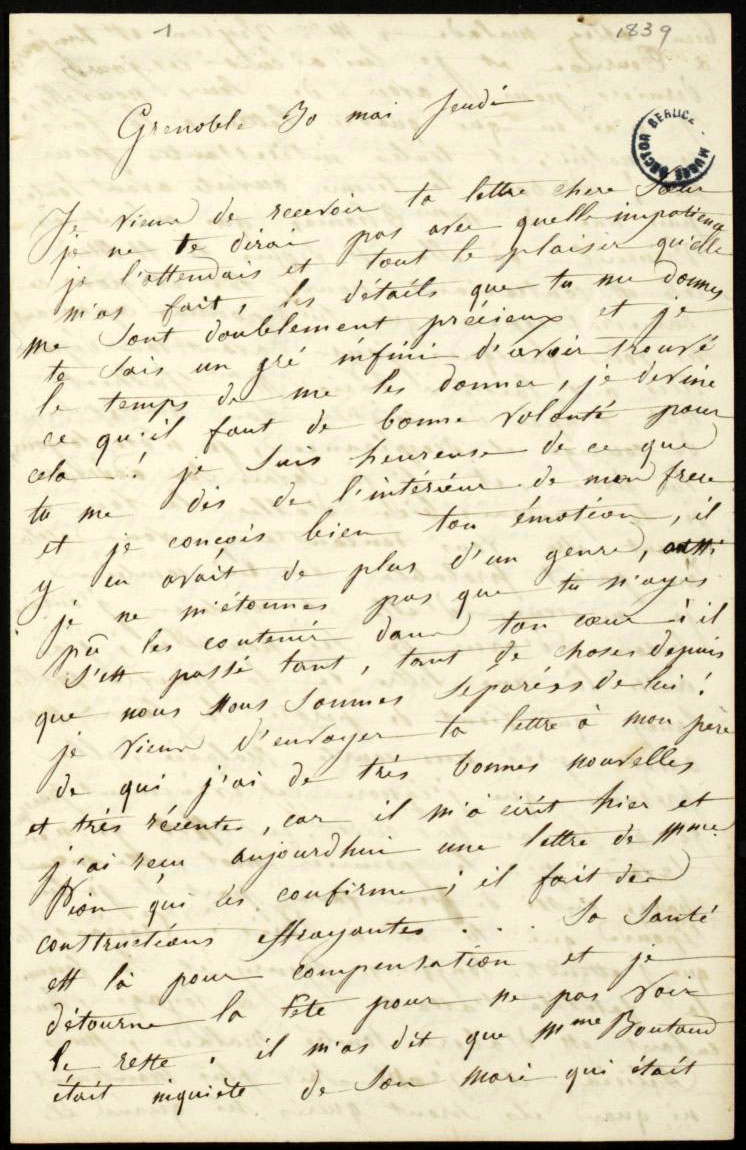 1
1839
MUSÉE HECTOR BERLIOZ
Grenoble 30 mai Jeudi
Je viens de recevoir ta lettre chere Sœur
je ne te dirai pas avec quelle impatience
je l'attendais et tout le plaisir qu'elle
m'as fait, les détails que tu me donnes
me sont doublement précieux et je
te sais un gré infini d'avoir trouvé
le temps de me les donner, je devine
ce qu'il faut de bonne volonté pour
cela ! je suis heureuse de ce que
tu me dis de l'intérieur de mon frere
et je conçois bien ton émotion, il
y en avait de plus d'un genre, aussi
je ne m'étonnes pas que tu n'ayes
pû les contenir dans ton cœur ! il
s'est passé tant, tant de choses depuis
que nous nous sommes separées de lui !
je viens d'envoyer ta lettre à mon père
de qui j'ai de très bonnes nouvelles
et très récentes, car il m'a écrit hier et
j'ai reçu aujourdhui une lettre de Mme
Pion qui les confirme ; il fait des
constructions effrayantes . . . Sa Santé
est là pour compensation et je
détourne la tête pour ne pas voir
le reste . il m'as dit que Mme Boutaud
était inquiete de son mari qui était